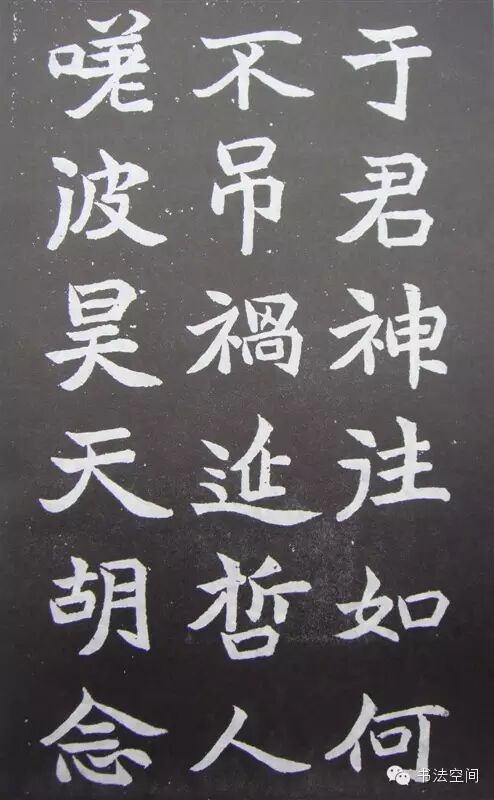 于君神往如何
不吊禍延哲人
嗟波昊天胡念
书法空间